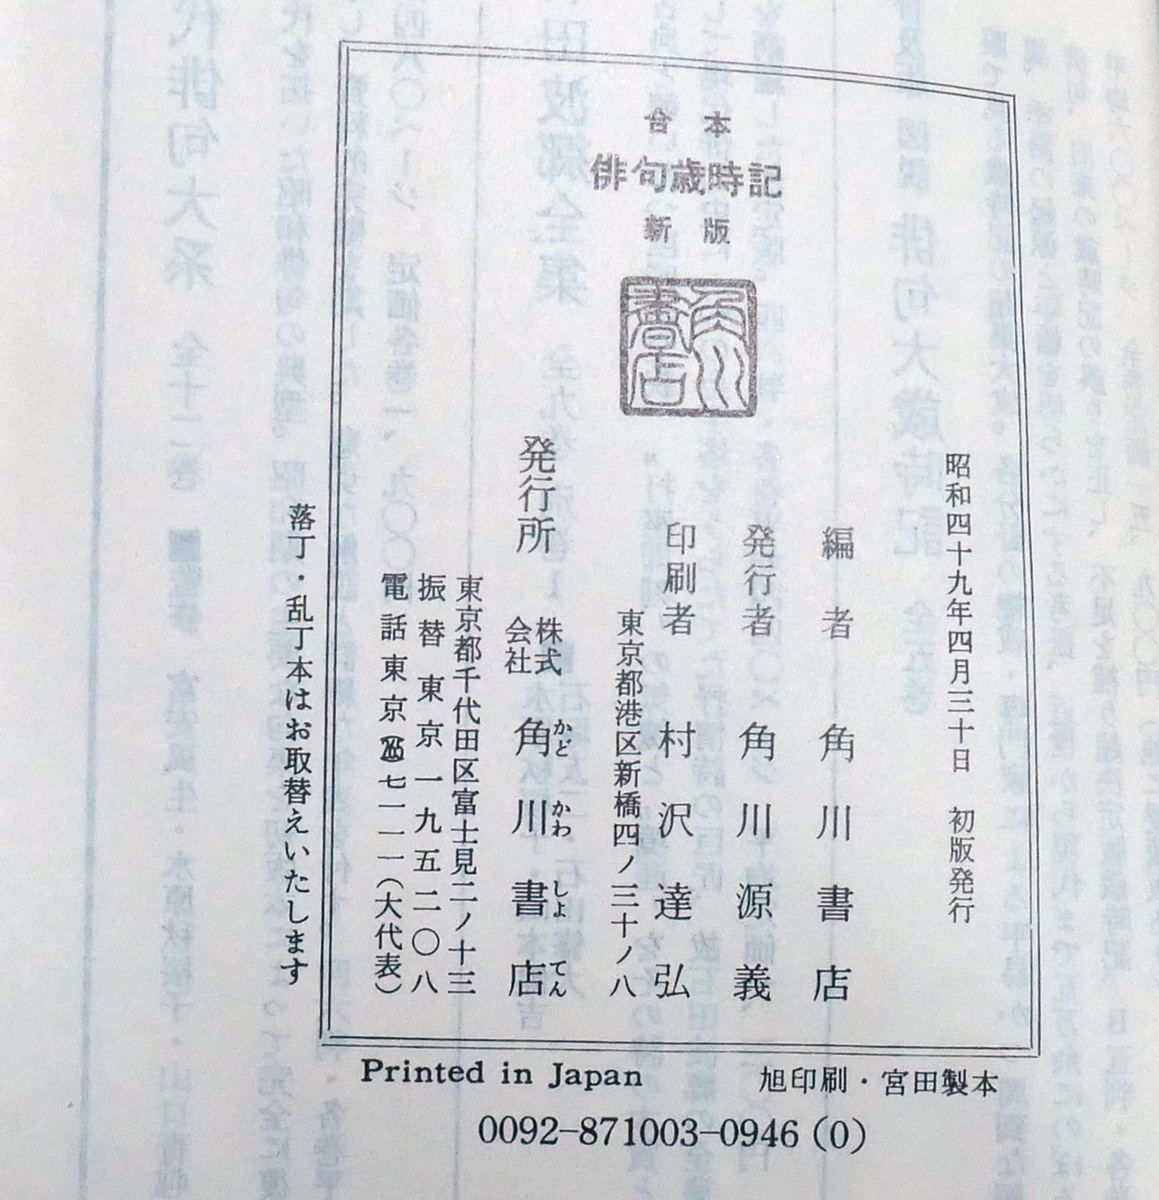 合本
俳句歳時記
新版
角川書店
昭和四十九年四月三十日 初版発行
編者 角川書店
発行者 角川源義
印刷者 村沢達弘
東京都港区新橋四ノ三十ノ八
発行所 株式会社 角川書店
かど かわ しょ てん
東京都千代田区富士見二ノ十三
振替東京一九五二〇八
電話東京 七一一一(大代表)
落丁・乱丁本はお取替えいたします
Printed in Japan
旭印刷・宮田製本
0092-871003-0946(0)